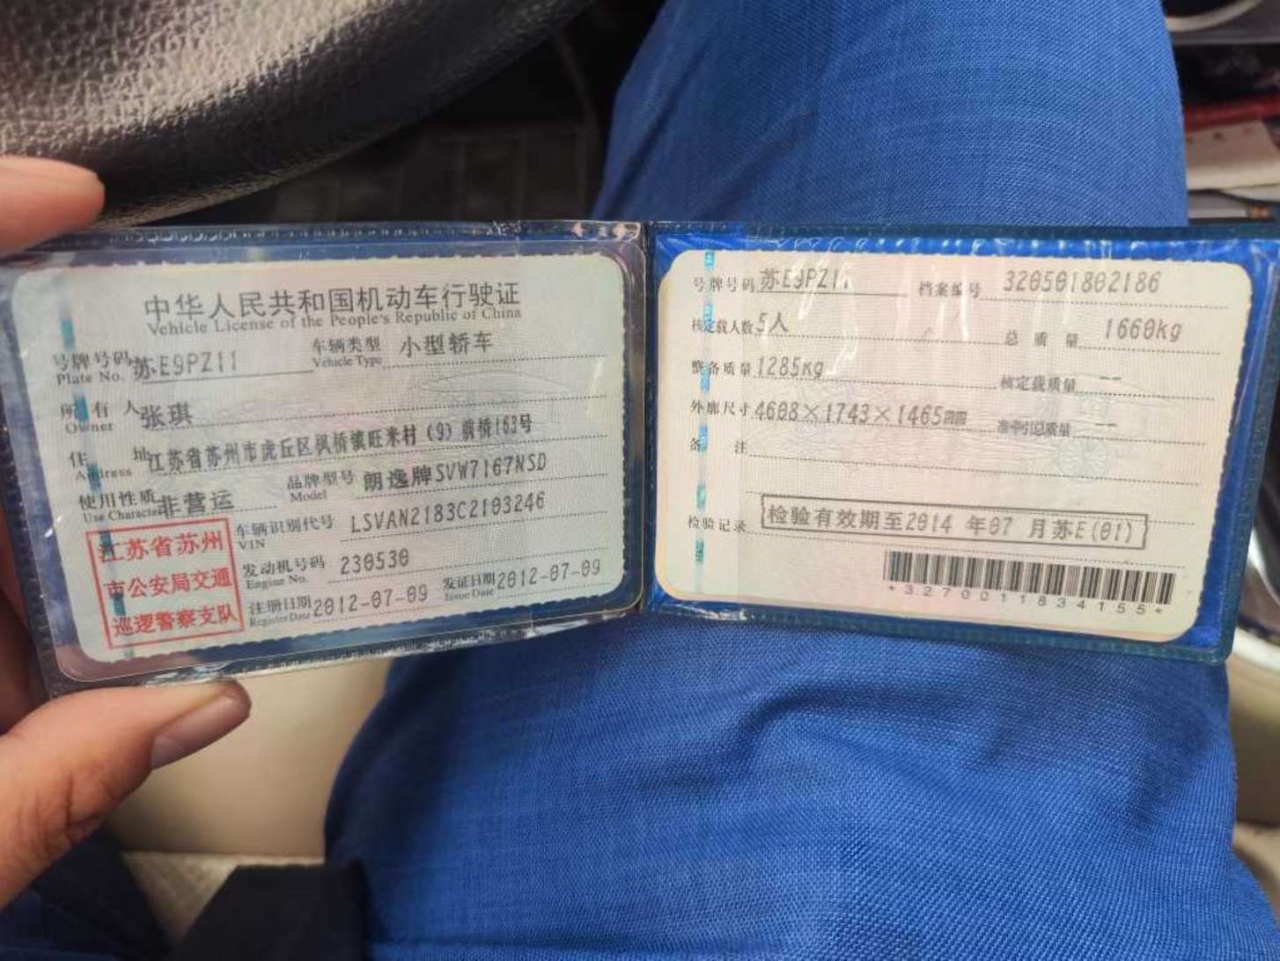 中华人民共和国机动车行驶证
Vehicle License of the People's Republic of China
号牌号码 苏E9PZ11 车辆类型 小型轿车
Plate No. Vehicle Type
所有人 张琪
Owner
住址 江苏省苏州市虎丘区枫桥镇旺米村(9)前桥163号
Address
使用性质 非营运 品牌型号 朗逸牌SVW7167NSD
Use Character Model
江苏省苏州
市公安局交通
巡逻警察支队
车辆识别代号 LSVAN2183C2103246
VIN
发动机号码 230530
Engine No.
注册日期 2012-07-09 发证日期 2012-07-09
Register Date Issue Date
号牌号码 苏E9PZ11 档案编号 320501802186
核定载人数 5人 总质量 1660kg
整备质量 1285kg 核定载质量 --
外廓尺寸 4608×1743×1465 准牵引总质量 --
备注
检验记录 检验有效期至2014年07月苏E(01)
*3270011834155*